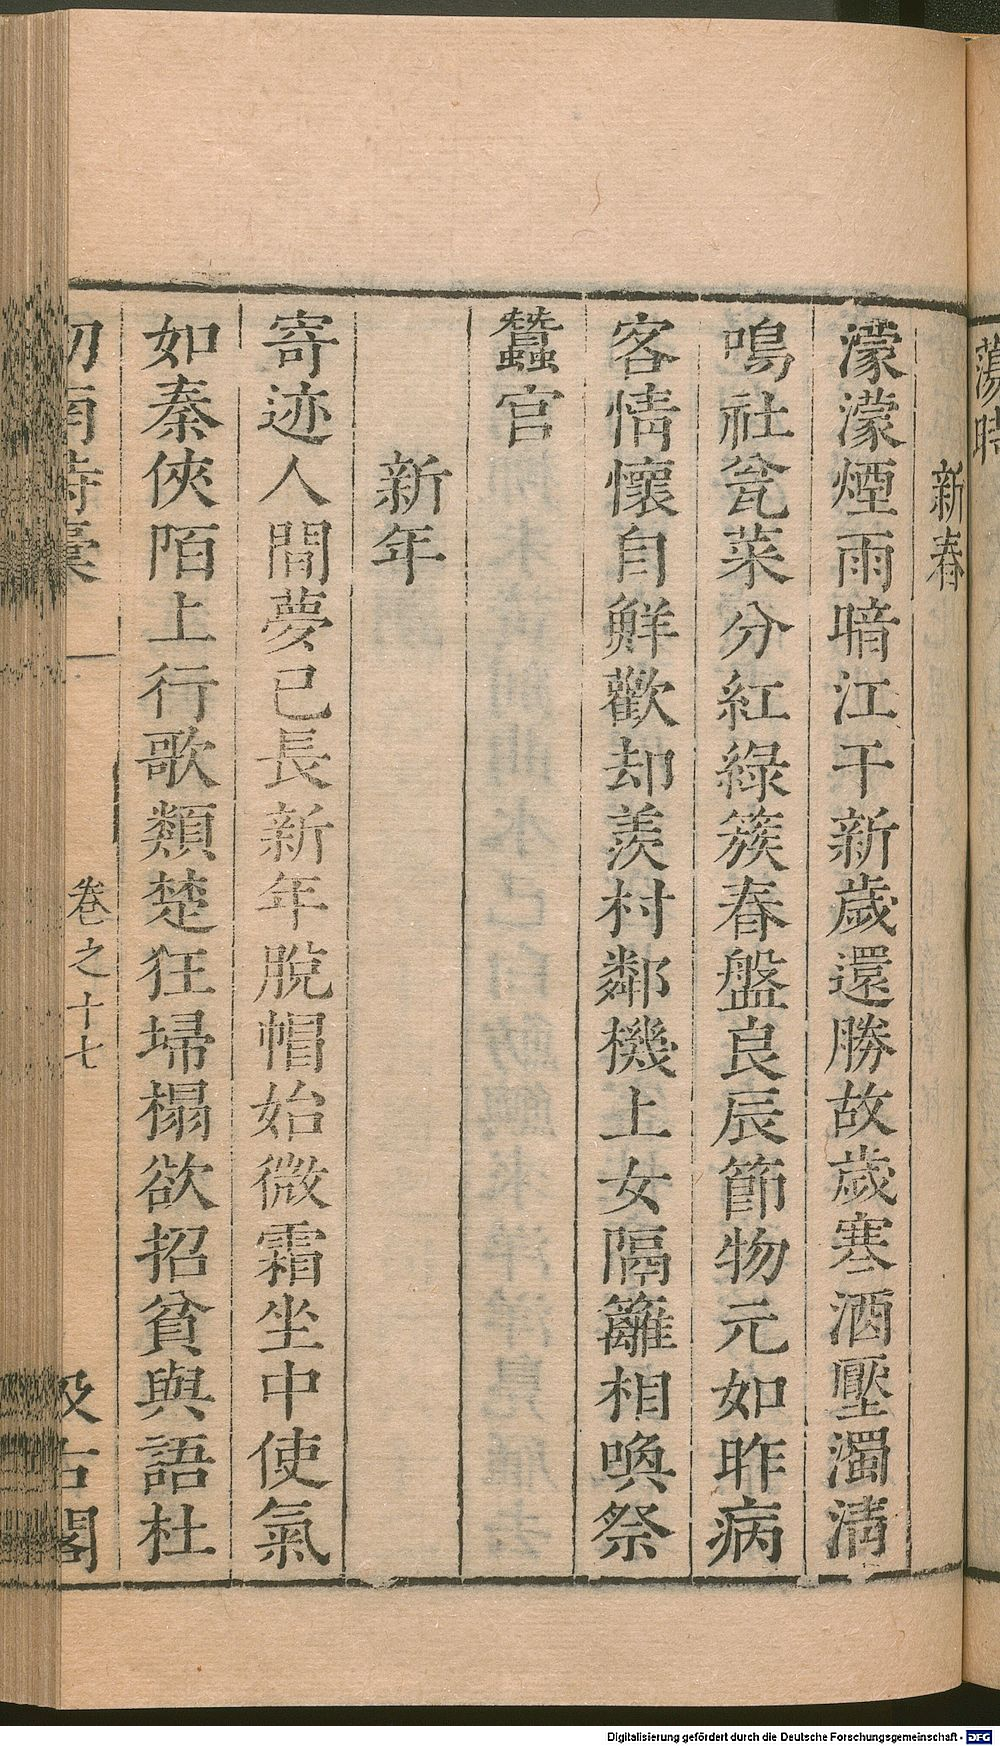 蕩時
新春
濛濛煙雨暗江干新歲還勝故歲寒酒壓濁清
鳴社瓮菜分紅綠簇春盤良辰節物元如昨病
客情懷自鮮歡却羨村鄰機上女隔籬相喚祭
蠶官
新年
寄迹人間夢已長新年脫帽始微霜坐中使氣
如秦俠陌上行歌類楚狂埽榻欲招貧與語杜
劒南詩稾
卷之十七
汲古閣
Digitalisierung gefördert durch die Deutsche Forschungsgemeinschaft - DFG